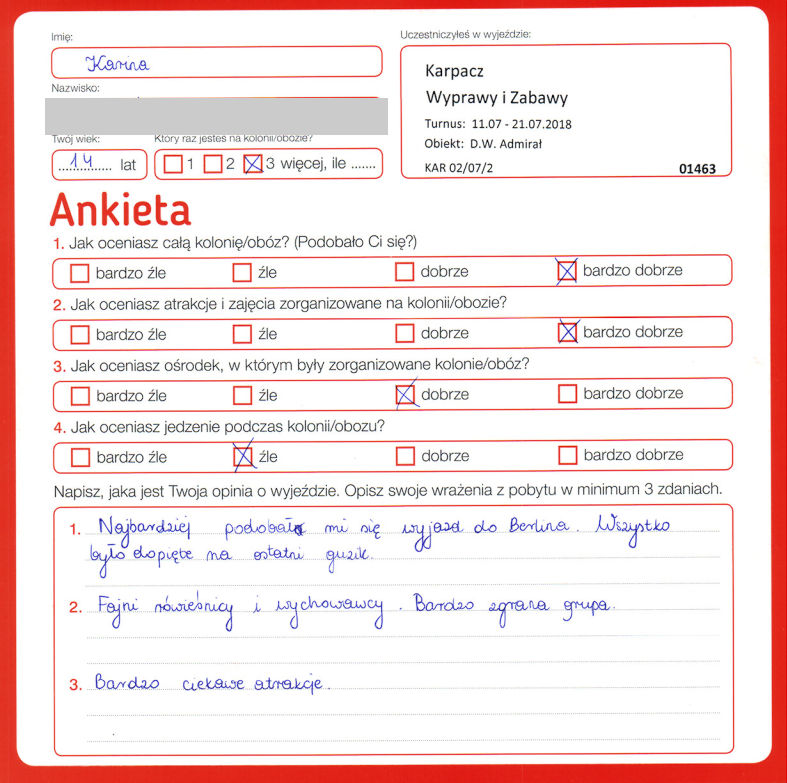 Imię:
Karina
Uczestniczyłeś w wyjeździe:
Karpacz
Wyprawy i Zabawy
Turnus: 11.07 - 21.07.2018
Obiekt: D.W. Admirał
KAR 02/07/2
01463
Nazwisko:
Twój wiek:
14 lat
Który raz jesteś na kolonii/obozie?
1 2 3 więcej, ile .......
Ankieta
1. Jak oceniasz całą kolonię/obóz? (Podobało Ci się?)
bardzo źle źle dobrze bardzo dobrze
2. Jak oceniasz atrakcje i zajęcia zorganizowane na kolonii/obozie?
bardzo źle źle dobrze bardzo dobrze
3. Jak oceniasz ośrodek, w którym były zorganizowane kolonie/obóz?
bardzo źle źle dobrze bardzo dobrze
4. Jak oceniasz jedzenie podczas kolonii/obozu?
bardzo źle źle dobrze bardzo dobrze
Napisz, jaka jest Twoja opinia o wyjeździe. Opisz swoje wrażenia z pobytu w minimum 3 zdaniach.
1. Najbardziej podobał mi się wyjazd do Berlina. Wszystko
było dopięte na ostatni guzik.
2. Fajni rówieśnicy i wychowawcy. Bardzo zgrana grupa.
3. Bardzo ciekawe atrakcje.